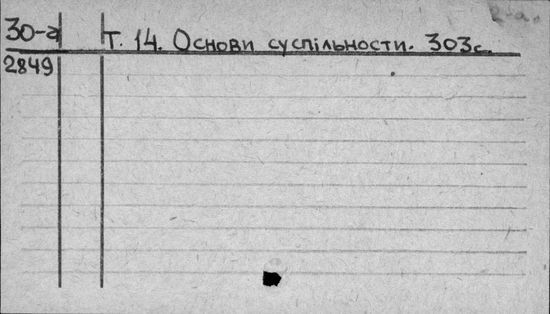 30-а Т. 14. Основи суспільности. 303 с.
2849